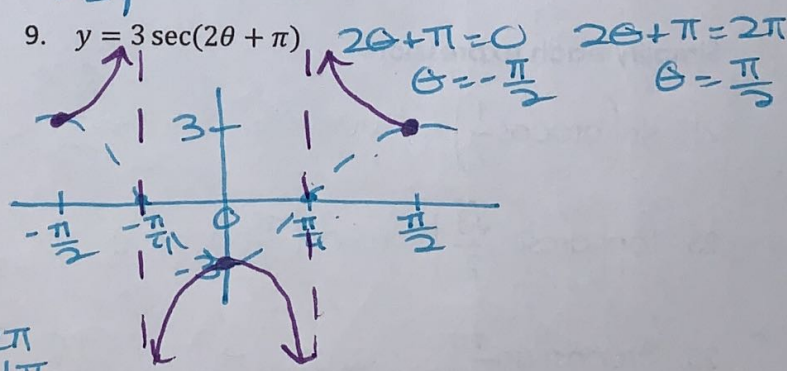 9. y = 3 sec(2θ + π) 2θ+π=0 2θ+π=2π
θ=-π/2 θ=π/2
3
-π/2 -π/4 0 π/4 π/2
-3
π